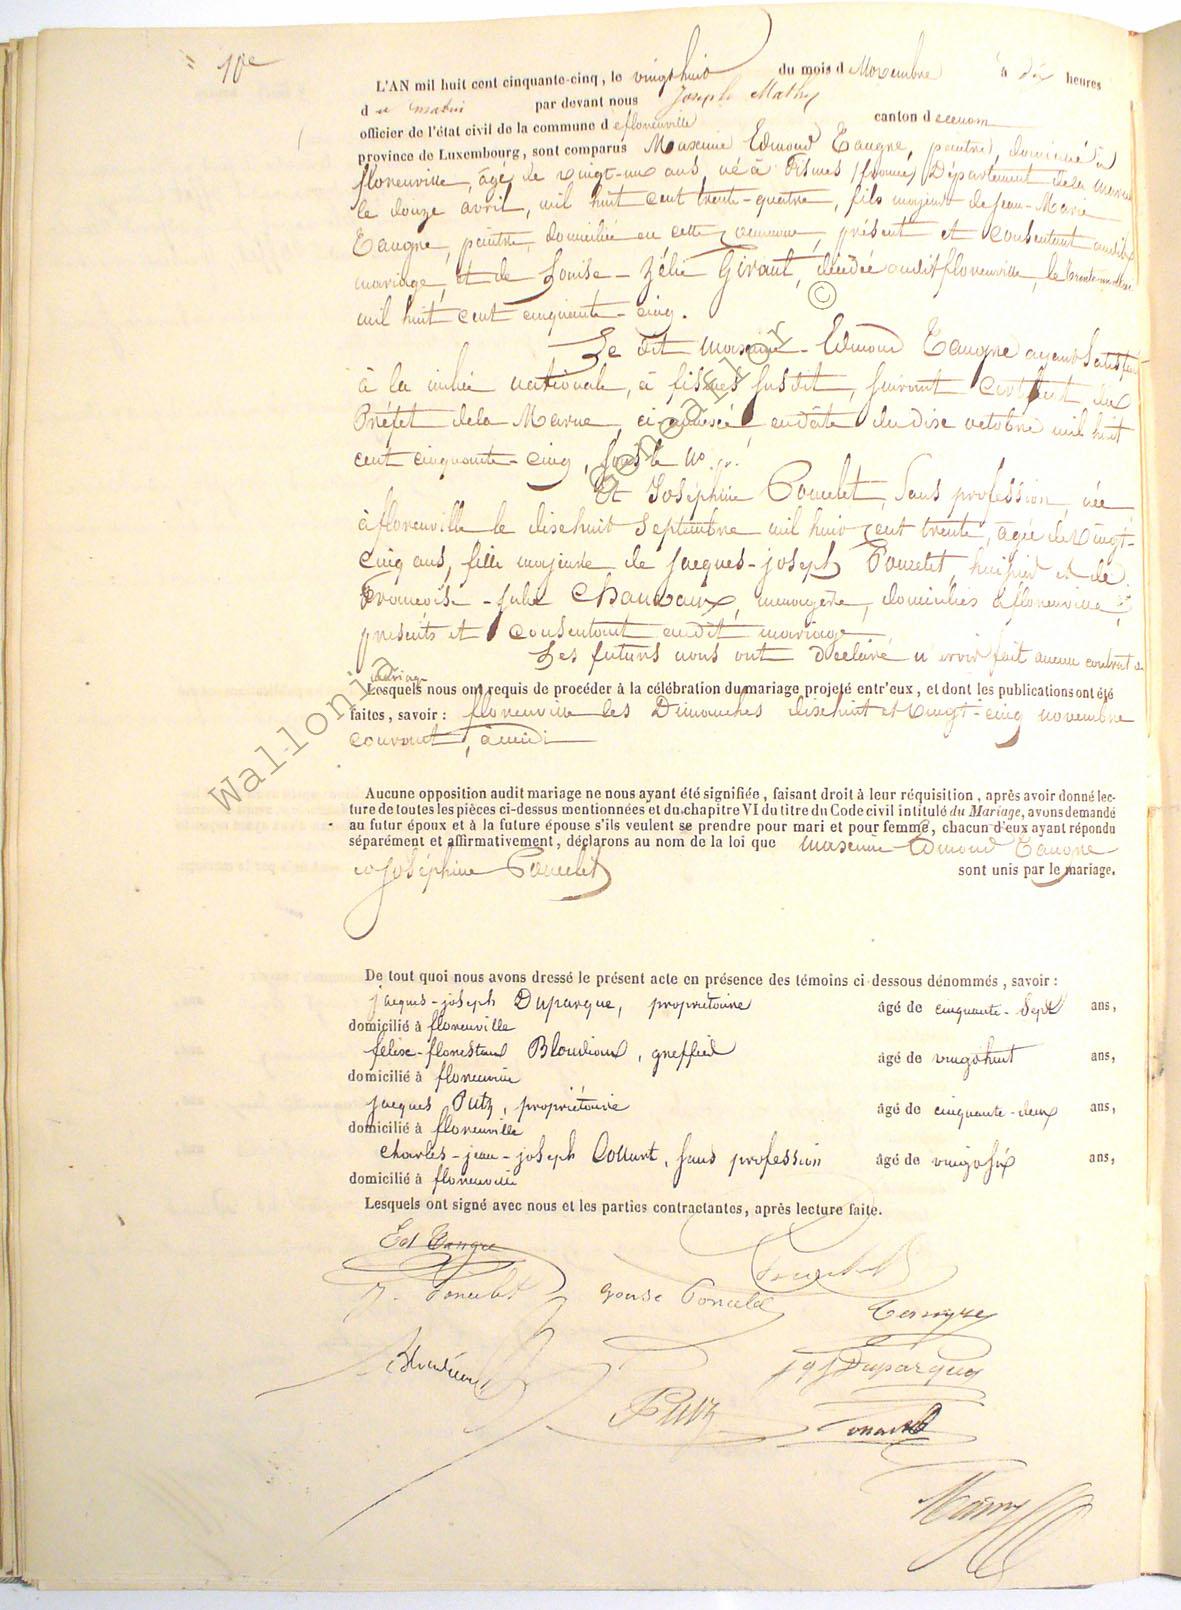 10e
L'AN mil huit cent cinquante-cinq, le vingt huit du mois d e Novembre à dix heures
d u matin par devant nous Joseph Mathy
officier de l'état civil de la commune d e florenville canton d e cenom
province de Luxembourg, sont comparus Maxime Edmond Taugne, peintre, domicilié à
florenville, âgé de vingt-un ans, né à Fismes (france) Département de la Marne
le douze avril, mil huit cent trente-quatre, fils majeur de Jean-Marie
Taugne, peintre, domicilié en cette commune, présent et consentant audit
mariage, et de Louise-Zélie Girant, décédée audit florenville, le
mil huit cent cinquante-cinq.
Le dit Maxime-Edmond Taugne ayant satisfait
à la milice nationale, à fismes susdit, suivant certificat du
Préfet de la Marne, ci annexé, en date du dix octobre mil huit
cent cinquante-cinq, sous le No.
Et Joséphine Poncelet, sans profession, née
à florenville le dixhuit Septembre mil huit cent trente, âgée de vingt-
cinq ans, fille majeure de Jacques-joseph Poncelet, huissier et de
Françoise-Julie Chauvaux, ménagère, domiciliés à florenville,
présents et consentant audit mariage.
Les futurs nous ont déclaré n'avoir fait aucun contrat de
mariage
Lesquels nous ont requis de procéder à la célébration du mariage projeté entr'eux, et dont les publications ont été
faites, savoir : florenville les Dimanches dixhuit et vingt-cinq novembre
courant, à midi
Aucune opposition audit mariage ne nous ayant été signifiée, faisant droit à leur réquisition, après avoir donné lec-
ture de toutes les pièces ci-dessus mentionnées et du chapitre VI du titre du Code civil intitulé du Mariage, avons demandé
au futur époux et à la future épouse s'ils veulent se prendre pour mari et pour femme, chacun d'eux ayant répondu
séparément et affirmativement, déclarons au nom de la loi que Maxime Edmond Taugne
et Joséphine Poncelet sont unis par le mariage.
De tout quoi nous avons dressé le présent acte en présence des témoins ci-dessous dénommés, savoir :
jacques-joseph Duparque, propriétaire âgé de cinquante-sept ans,
domicilié à florenville
félix-florestant Blondiaux, greffier âgé de vingt huit ans,
domicilié à florenville
jacques Putz, propriétaire âgé de cinquante-deux ans,
domicilié à florenville
charles-jean-joseph Collart, sans profession âgé de vingt six ans,
domicilié à florenville
Lesquels ont signé avec nous et les parties contractantes, après lecture faite.
Ed Taugne
Poncelet
J. Poncelet
Poncelet
Taugne
Blondiaux
J J Duparque
Putz
Mathy
Wallonia
Genealor
©